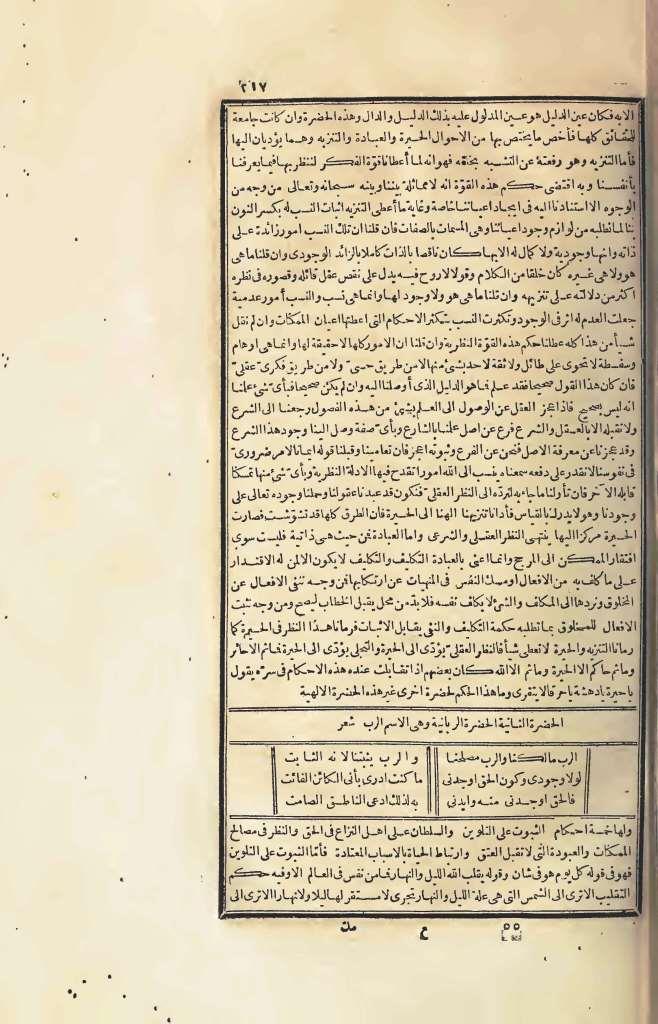 ٢١٧
الا به فكان عين الدليل هو عين المدلول عليه بذلك الدليل والدال وهذه الحضرة وان كانت جامعة
للحقائق كلها فأخص ما يختص بها من الاحوال الحيرة والعبادة والتنزيه وهما يؤديان اليها
فأما التنزيه وهو رفعته عن التشبيه بخلقه فهو انه لما أعطانا قوة الفكر لننظر بها فيما يعرفنا
بأنفسنا وبه اقتضى حكم هذه القوة انه لا مماثلة بيننا وبينه سبحانه وتعالى من وجه من
الوجوه الا استنادنا اليه في ايجاد اعياننا خاصة وغاية ما أعطى التنزيه اثبات النسب له بكسر النون
بنا لما نطلبه من لوازم وجود اعياننا وهى المسمات بالصفات فان قلنا ان تلك النسب امور زائدة على
ذاته وانها وجودية ولا كمال له الا بها كان ناقصا بالذات كاملا بالزائد الوجودى وان قلنا ما هى
هو ولا هى غيره كان خلفا من الكلام وقولا لا روح فيه يدل على نقص عقل قائله وقصوره في نظره
اكثر من دلالته على تنزيهه وان قلنا ما هى هو ولا وجود لها وانما هى نسب والنسب أمور عدمية
جعلت العدم له اثر في الوجود وتكثرت النسب بتكثر الاحكام التى اعطتها اعيان الممكنات وان لم نقل
شيأ من هذا كله عطلنا حكم هذه القوة النظرية وان قلنا ان الامور كلها لا حقيقة لها وانما هى اوهام
وسفسطة لا تحوى على طائل ولا ثقة لاحد بشئ منها لا من طريق حسى ولا من طريق فكرى عقلى
فان كان هذا القول صحيحا فقد علم فما هو الدليل الذى أوصلنا اليه وان لم يكن صحيحا فبأى شئ علمنا
انه ليس بصحيح فاذا عجز العقل عن الوصول الى العلم بشئ من هذه الفصول رجعنا الى الشرع
ولا نقبله الا بالعقل والشرع فرع عن اصل علمنا بالشارع وبأى صفة وصل الينا وجود هذا الشرع
وقد عجزنا عن معرفة الاصل فنحن عن الفرع وثبوته اعجز فان تعامينا وقبلنا قوله ايمانا لامر ضرورى
في نفوسنا لا نقدر على دفعه سمعناه ينسب الى الله امورا تقدح فيها الادلة النظرية وبأى شئ منها تمسكنا
قابله الآخر فان تأولنا ما جاء به لنرده الى النظر العقلى فنكون قد عبدنا عقولنا وحملنا وجوده تعالى على
وجودنا وهو لا يدرك بالقياس فأدانا تنزيهنا الهنا الى الحيرة فان الطرق كلها قد تشوشت فصارت
الحيرة مركزا اليها ينتهى النظر العقلى والشرعى واما العبادة فمن حيث هى ذاتية فليست سوى
افتقار الممكن الى المرجح وانما اعنى بالعبادة التكليف والتكليف لا يكون الا لمن له الاقتدار
على ما كلف به من الافعال او مسك النفس في المنهيات عن ارتكابها فمن وجه ننفى الافعال عن
المخلوق ونردها الى المكلف والشئ لا يكلف نفسه فلا بد من محل يقبل الخطاب ليصح ومن وجه نثبت
الافعال للمخلوق بما تطلبه حكمة التكليف والنفى يقابل الاثبات فرمانا هذا النظر في الحيرة كما
رمانا التنزيه والحيرة لا تعطى شيأ فالنظر العقلى يؤدى الى الحيرة والتجلى يؤدى الى الحيرة فما ثم الا حائر
وما ثم حاكم الا الحيرة وما ثم الا الله كان بعضهم اذا تقابلت عنده هذه الاحكام في سره يقول
يا حيرة يا دهشة يا حرفا لا يتقرى وما هذا الحكم لحضرة اخرى غير هذه الحضرة الالهية
الحضرة الثانية الحضرة الربانية وهى الاسم الرب شعر
الرب مالكنا والرب مصلحنا والرب يثبتنا لانه الثابت
لولا وجودى وكون الحق اوجدنى ما كنت ادرى بأنى الكائن الفائت
فالحق اوجدنى منه وايدنى به لذلك ادعى الناطق الصامت
ولها خمسة احكام الثبوت على التلوين والسلطان على اهل النزاع في الحق والنظر في مصالح
الممكنات والعبودة التى لا تقبل العتق وارتباط الحياة بالاسباب المعتادة فأما الثبوت على التلوين
فهو في قوله كل يوم هو في شان وقوله يقلب الله الليل والنهار فما من نفس في العالم الا وفيه حكم
التقليب الا ترى الى الشمس التى هى علة الليل والنهار تجرى لا مستقر لها ليلا ولا نهارا الا ترى الى